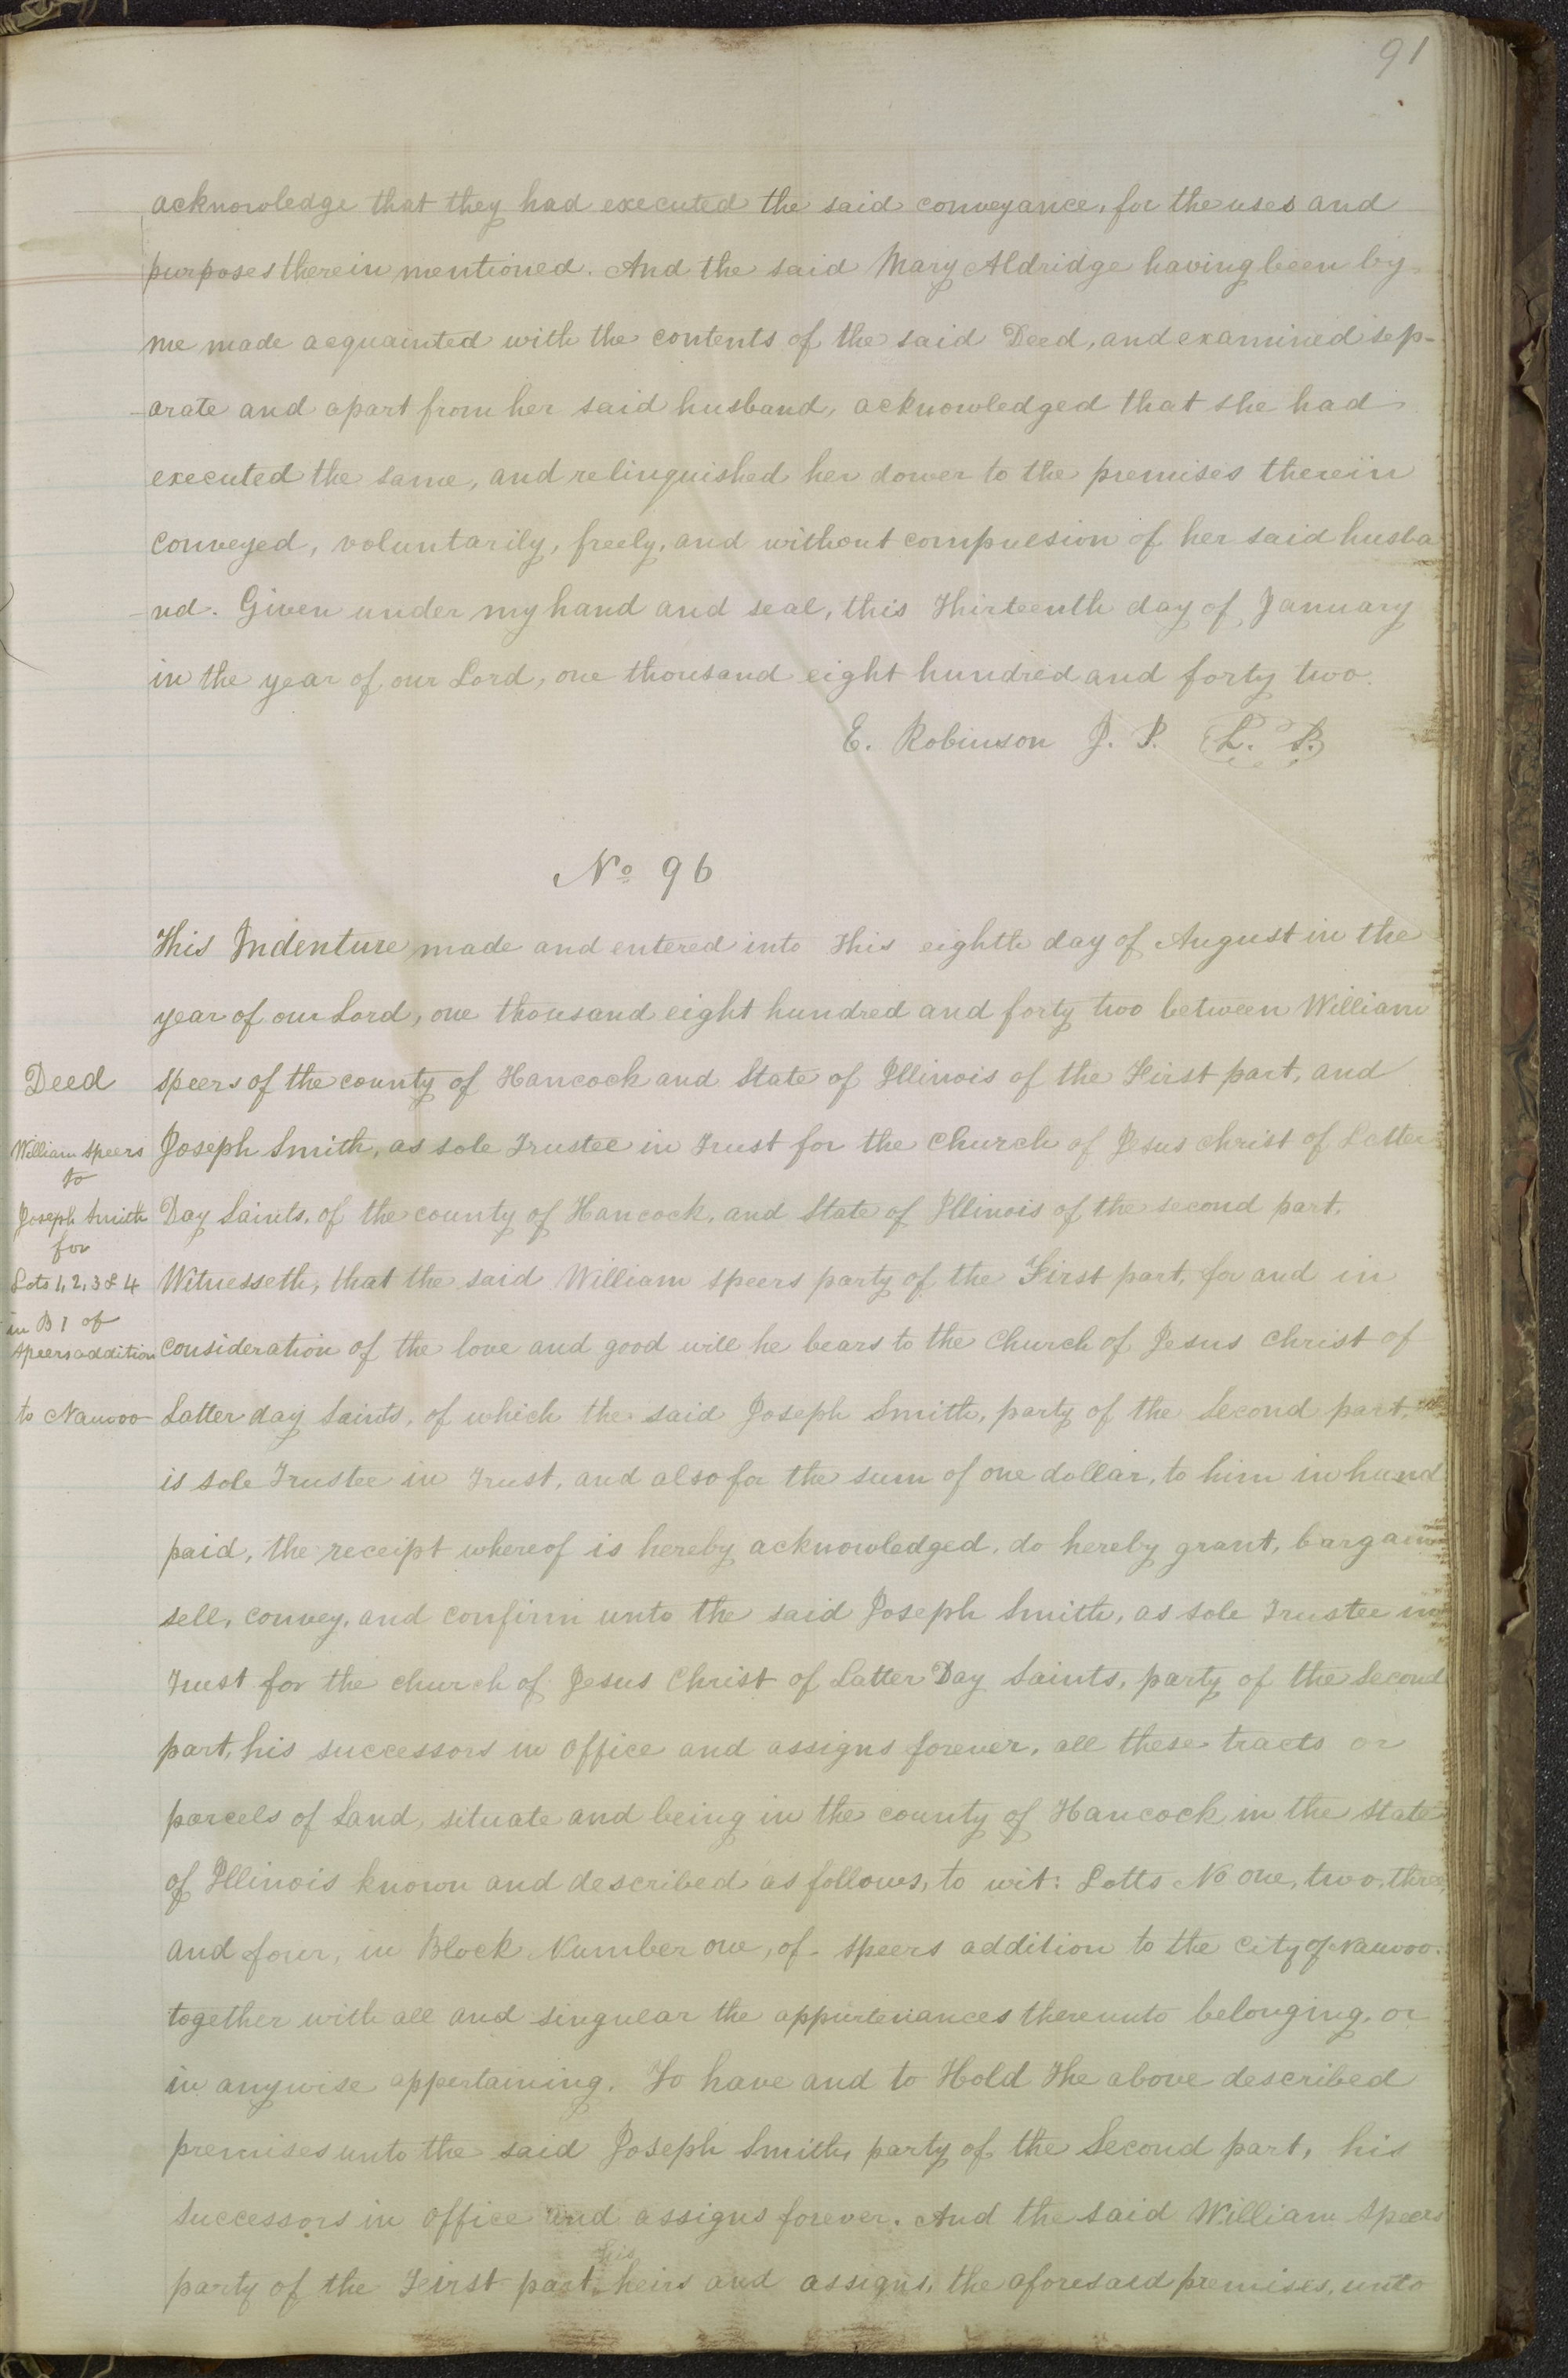 91
acknowledge that they had executed the said conveyance, for the uses and
purposes therein mentioned. And the said Mary Aldridge having been by
me made acquainted with the contents of the said Deed, and examined sep-
-arate and apart from her said husband, acknowledged that she had
executed the same, and relinquished her dower to the premises therein
conveyed, voluntarily, freely, and without compulsion of her said husba
-nd. Given under my hand and seal, this Thirteenth day of January
in the year of our Lord, one thousand eight hundred and forty two.
E. Robinson J. P. (L. S.)
No 96
This Indenture made and entered into this eighth day of August in the
year of our Lord, one thousand eight hundred and forty two between William
Deed
speers of the county of Hancock and State of Illinois of the First part, and
William speers
Joseph Smith, as sole Trustee in Trust for the Church of Jesus christ of Latter
to
Joseph Smith
Day Saints, of the county of Hancock, and State of Illinois of the second part.
for
Lots 1, 2, 3 & 4
Witnesseth, that the said William speers party of the First part, for and in
in B 1 of
Speers addition
consideration of the love and good will he bears to the Church of Jesus christ of
to Nauvoo
Latter day Saints, of which the said Joseph Smith, party of the Second part,
is sole Trustee in Trust, and also for the sum of one dollar, to him in hand
paid, the receipt whereof is hereby acknowledged, do hereby grant, bargain
sell, convey, and confirm unto the said Joseph Smith, as sole Trustee in
Trust for the church of Jesus Christ of Latter Day Saints, party of the Second
part, his successors in office and assigns forever, all these tracts or
parcels of Land, situate and being in the county of Hancock in the State
of Illinois known and described as follows, to wit: Lotts No one, two, three
and four, in Block Number one, of speers addition to the City of Nauvoo.
together with all and singular the appurtenances thereunto belonging, or
in anywise appertaining. To have and to Hold The above described
premises unto the said Joseph Smith, party of the Second part, his
successors in office and assigns forever. And the said William Speers
his
party of the First part, heirs and assigns, the aforesaid premises, unto